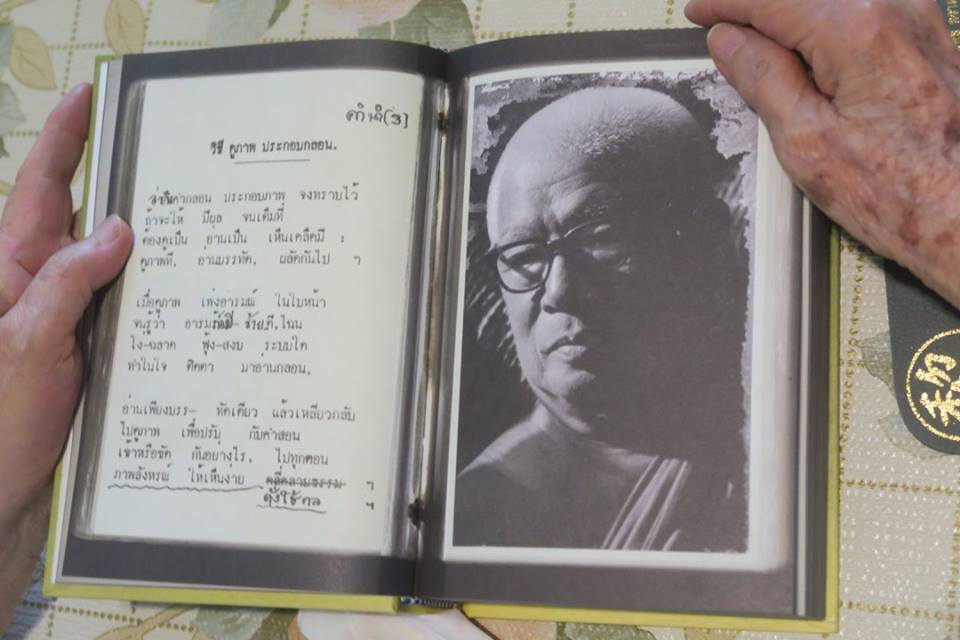 คำนำ[3]
วิธี ดูภาพ ประกอบกลอน.
คำกลอน ประกอบภาพ จงทราบไว้
ถ้าจะให้ มีผล จนเต็มที่
ต้องดูเป็น อ่านเป็น เห็นเคล็ดมี :
ดูภาพที, อ่านบรรทัด, ผลัดกันไป ฯ
เมื่อดูภาพ เพ่งอารมณ์ ในใบหน้า
จนรู้ว่า อารมณ์ ไฉน
โง่-ฉลาด ฟุ้ง-สงบ ระบบใด
ทำในใจ ติดตา มาอ่านกลอน,
อ่านเพียงบรร- ทัดเดียว แล้วเหลียวกลับ
ไปดูภาพ เพื่อปรับ กับคำสอน
เข้าหรือขัด กันอย่างไร, ไปทุกตอน
ภาพสังหรณ์ ให้เห็นง่าย คลี่คลายธรรม ฯ
ดั่งใช้กล ฯ